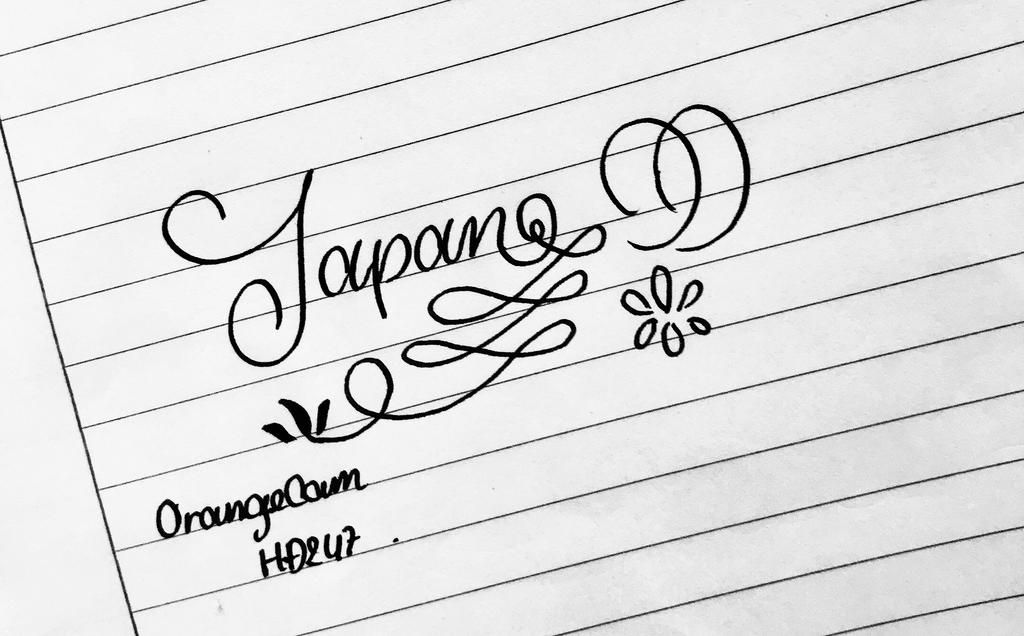 Japano
OrangeCam
HĐ247.